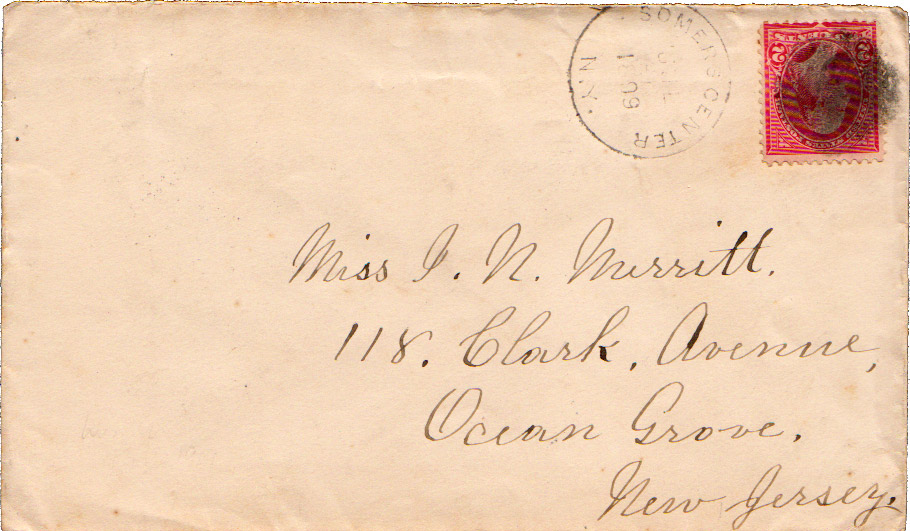 SOMERS CENTER
N.Y.
Miss I. N. Merritt.
118. Clark. Avenue,
Ocean Grove.
New Jersey.